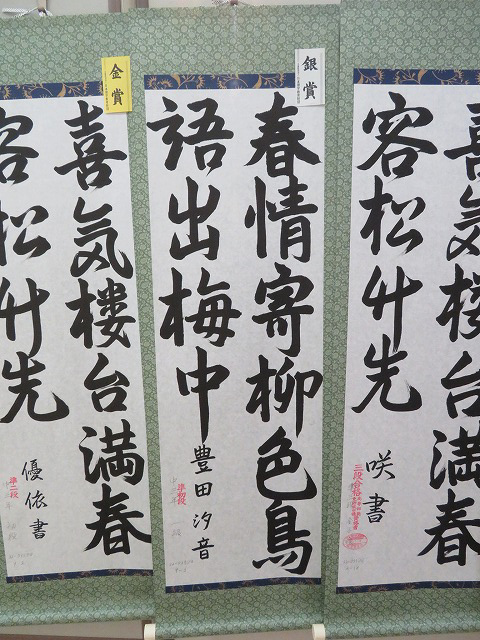 金賞
喜気楼台満春
容松竹先
優依書
準二段
銀賞
春情寄柳色鳥
語出梅中
豊田汐音
準初段
喜気楼台満春
容松竹先
咲書
三段合格